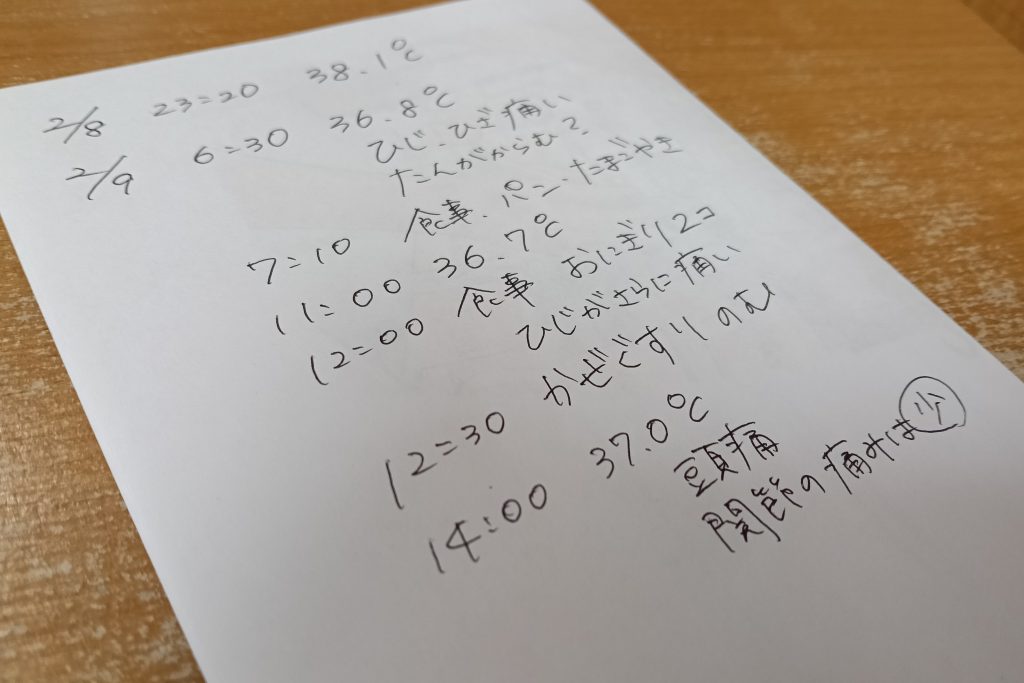 2/8 23:20 38.1℃
2/9 6:30 36.8℃
ひじ、ひざ痛い
たんがからむ?
7:10 食事、パン・たまごやき
11:00 36.7℃
12:00 食事 おにぎり2コ
ひじがさらに痛い
12:30 かぜぐすりのむ
14:00 37.0℃
頭痛
関節の痛みは少